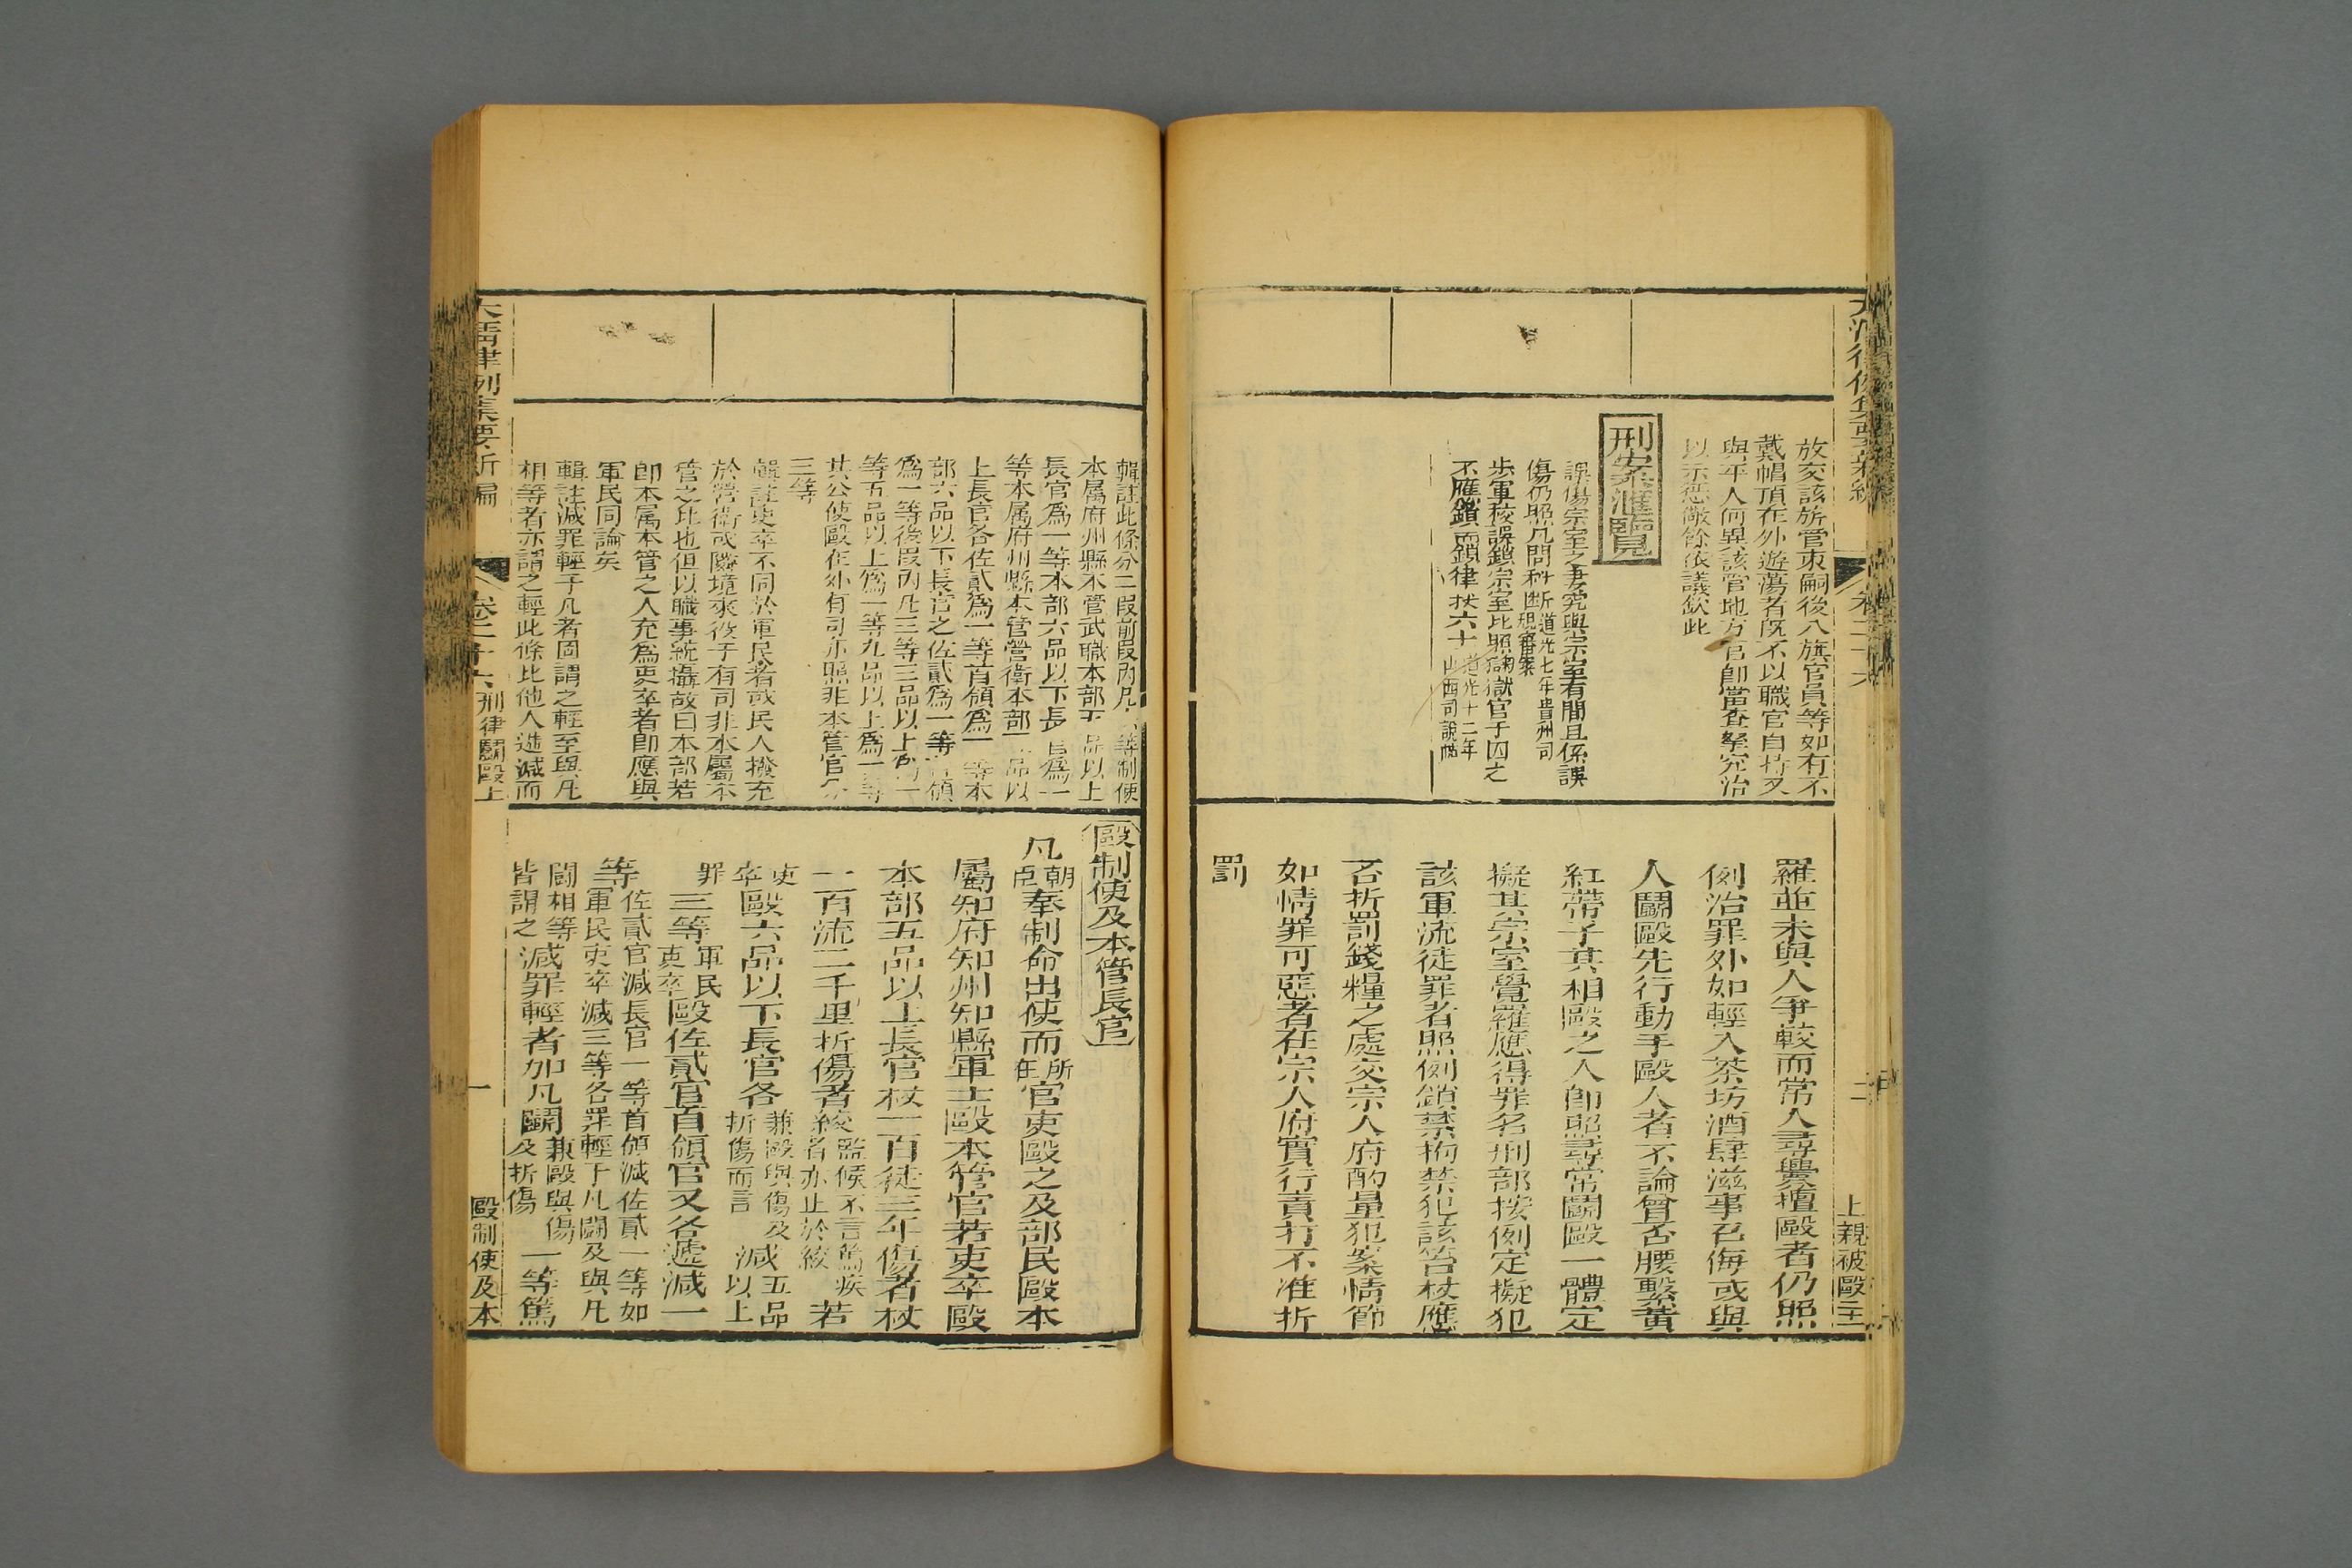 放交該旂管束嗣後八旗官員等如有不
戴帽頂在外遊蕩者旣不以職官自待又
與平人何異該管地方官卽當查拏究治
以示懲儆餘依議欽此
刑案滙覽
誤傷宗室之妻究與宗室有間且係誤
傷仍照凡問科斷道光七年貴州司
現審案
步軍校誤鎖宗室比照獄官于囚之
不應鎖而鎖律杖六十道光十二年
山西司說帖
羅並未與人爭較而常人尋釁擅毆者仍照
例治罪外如輕入茶坊酒肆滋事召侮或與
人鬭毆先行動手毆人者不論曾否腰繫黃
紅帶子其相毆之人卽照尋常鬭毆一體定
擬其宗室覺羅應得罪名刑部按例定擬犯
該軍流徒罪者照例鎖禁拘禁犯該笞杖應
否折罰錢糧之處交宗人府酌量犯案情節
如情罪可惡者在宗人府實行責打不准折
罰
上親被毆
輯註此條分二段前段內凡 等制使
本屬府州縣本管武職本部五品以上
長官爲一等本部六品以下長官爲一
等本屬府州縣本管營衛本部五品以
上長官各佐貳爲一等首領爲一等本
部六品以下長官之佐貳爲一等首領
爲一等後段內凡三等三品以上爲一
等五品以上爲一等九品以上爲一等
其公使毆在外有司亦照非本管官分
三等
輯註吏卒不同於軍民者或民人撥充
於營衛或隣境來役于有司非本屬本
管之比也但以職事統攝故曰本部若
卽本屬本管之人充爲吏卒者卽應與
軍民同論矣
輯註減罪輕于凡者固謂之輕至與凡
相等者亦謂之輕此條比他人遞減而
毆制使及本管長官
凡朝臣奉制命出使而所在官吏毆之及部民毆本
屬知府知州知縣軍士毆本管官若吏卒毆
本部五品以上長官杖一百徒三年傷者杖
一百流二千里折傷者絞監候不言篤疾者亦止於絞若
吏卒毆六品以下長官各兼毆與傷及折傷而言減五品以上
罪三等軍民吏卒毆佐貳官首領官又各遞減一
等佐貳官減長官一等首領減佐貳一等如軍民吏卒減三等各罪輕于凡鬭及與凡
鬭相等皆謂之減罪輕者加凡鬭兼毆與傷及折傷一等篤
大淸律例集要新編 卷二十六 刑律鬭毆上 一 毆制使及本